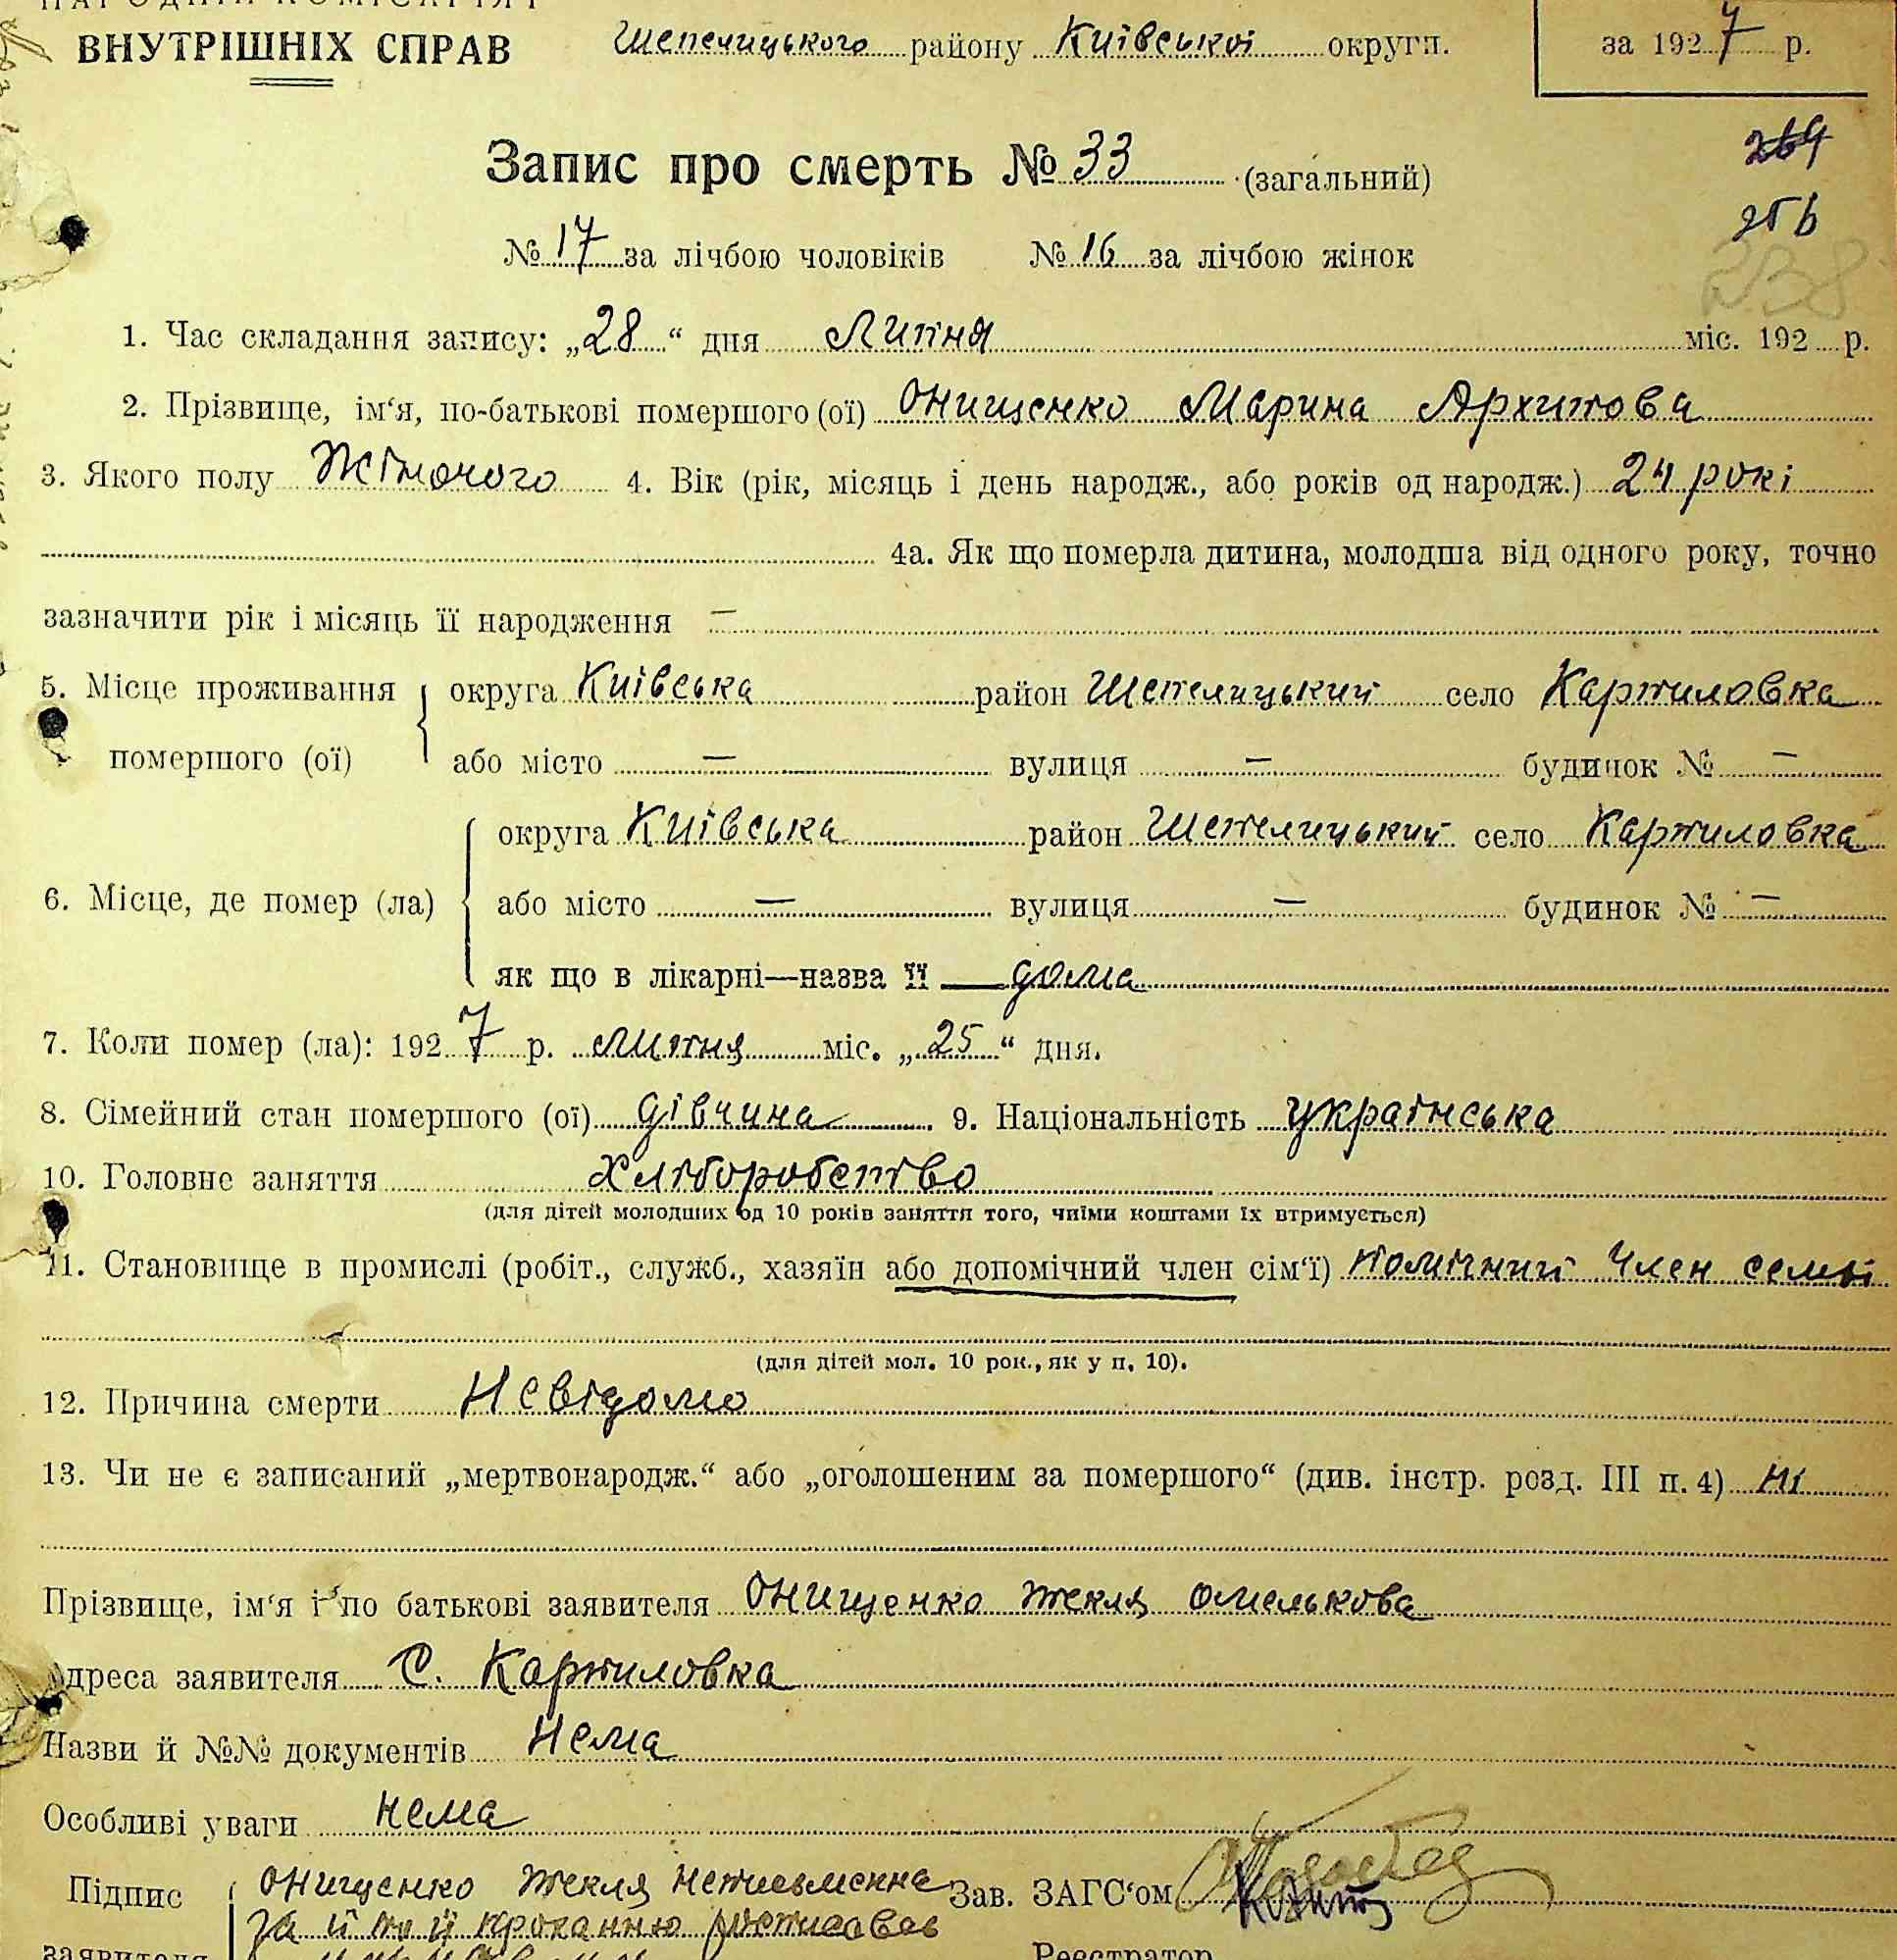 НАРОДНІЙ КОМІСАРІЯТ
ВНУТРІШНІХ СПРАВ
Шепелицького району Київської округи.
за 1927 р.
Запис про смерть № 33 (загальний)
264
256
238
№ 17 за лічбою чоловіків № 16 за лічбою жінок
1. Час складання запису: „28“ дня Липня міс. 192 р.
2. Прізвище, ім‘я, по-батькові помершого (ої) Онищенко Марина Архипова
3. Якого полу Жіночого 4. Вік (рік, місяць і день народж., або років од народж.) 24 рокі
4а. Як що померла дитина, молодша від одного року, точно
зазначити рік і місяць її народження —
5. Місце проживання помершого (ої) округа Київська район Шепелицький село Картиловка
або місто — вулиця — будинок № —
6. Місце, де помер (ла) округа Київська район Шепелицький село Картиловка
або місто — вулиця — будинок № —
як що в лікарні—назва її — дома
7. Коли помер (ла): 1927 р. липня міс. „25“ дня.
8. Сімейний стан помершого (ої) дівчина 9. Національність українська
10. Головне заняття Хліборобство
(для дітей молодших од 10 років заняття того, чиїми коштами їх втримується)
11. Становище в промислі (робіт., служб., хазяїн або допомічний член сім‘ї) помічний член семьі
(для дітей мол. 10 рок., як у п. 10).
12. Причина смерти Невідомо
13. Чи не є записаний „мертвонародж.“ або „оголошеним за помершого“ (див. інстр. розд. III п. 4) ні
Прізвище, ім‘я і по батькові заявителя Онищенко Текля Омелькова
Адреса заявителя С. Картиловка
Назви й №№ документів Нема
Особливі уваги нема
Підпис заявителя Онищенко Текля неписьменна Зав. ЗАГС‘ом
за її проханню росписався
Реєстратор